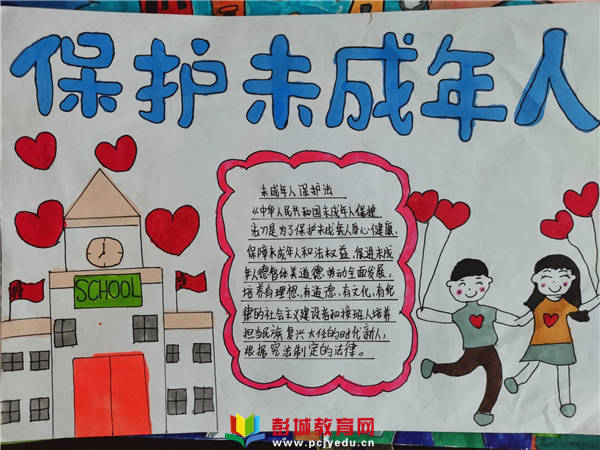 保护未成年人
SCHOOL
未成年人保护法
《中华人民共和国未成年人保护
法》是为了保护未成年人身心健康,
保障未成年人和法权益,促进未成
年人德智体美道德劳动全面发展,
培养有理想,有道德,有文化,有纪
律的社会主义建设者和接班人培养
担当民族复兴大任的时代新人,
根据宪法制定的法律。
彭城教育网
www.pcjyedu.cn